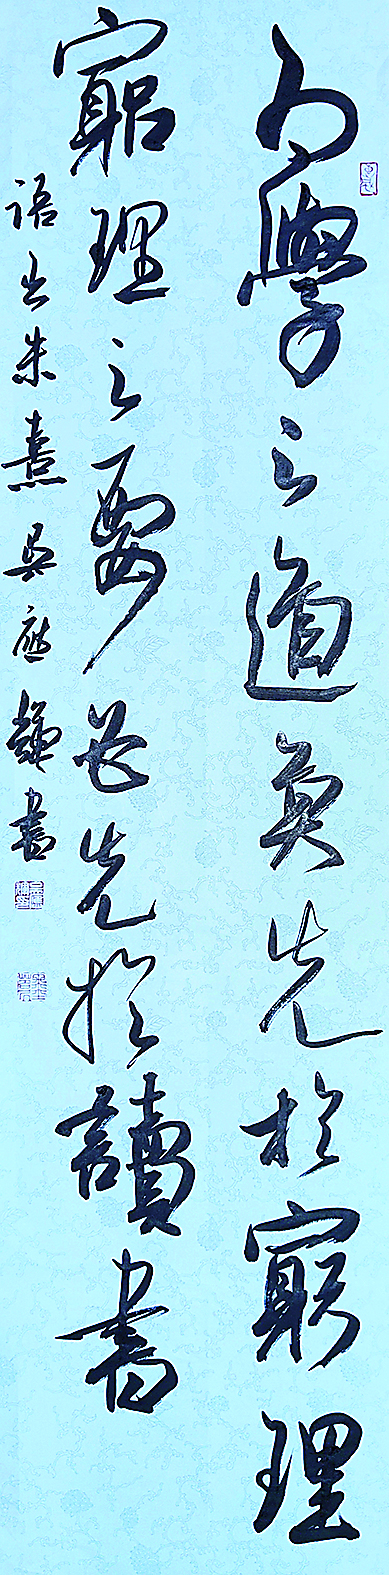 为學之道莫先於窮理
窮理之要必先於讀書
語出朱熹 吳应謙書